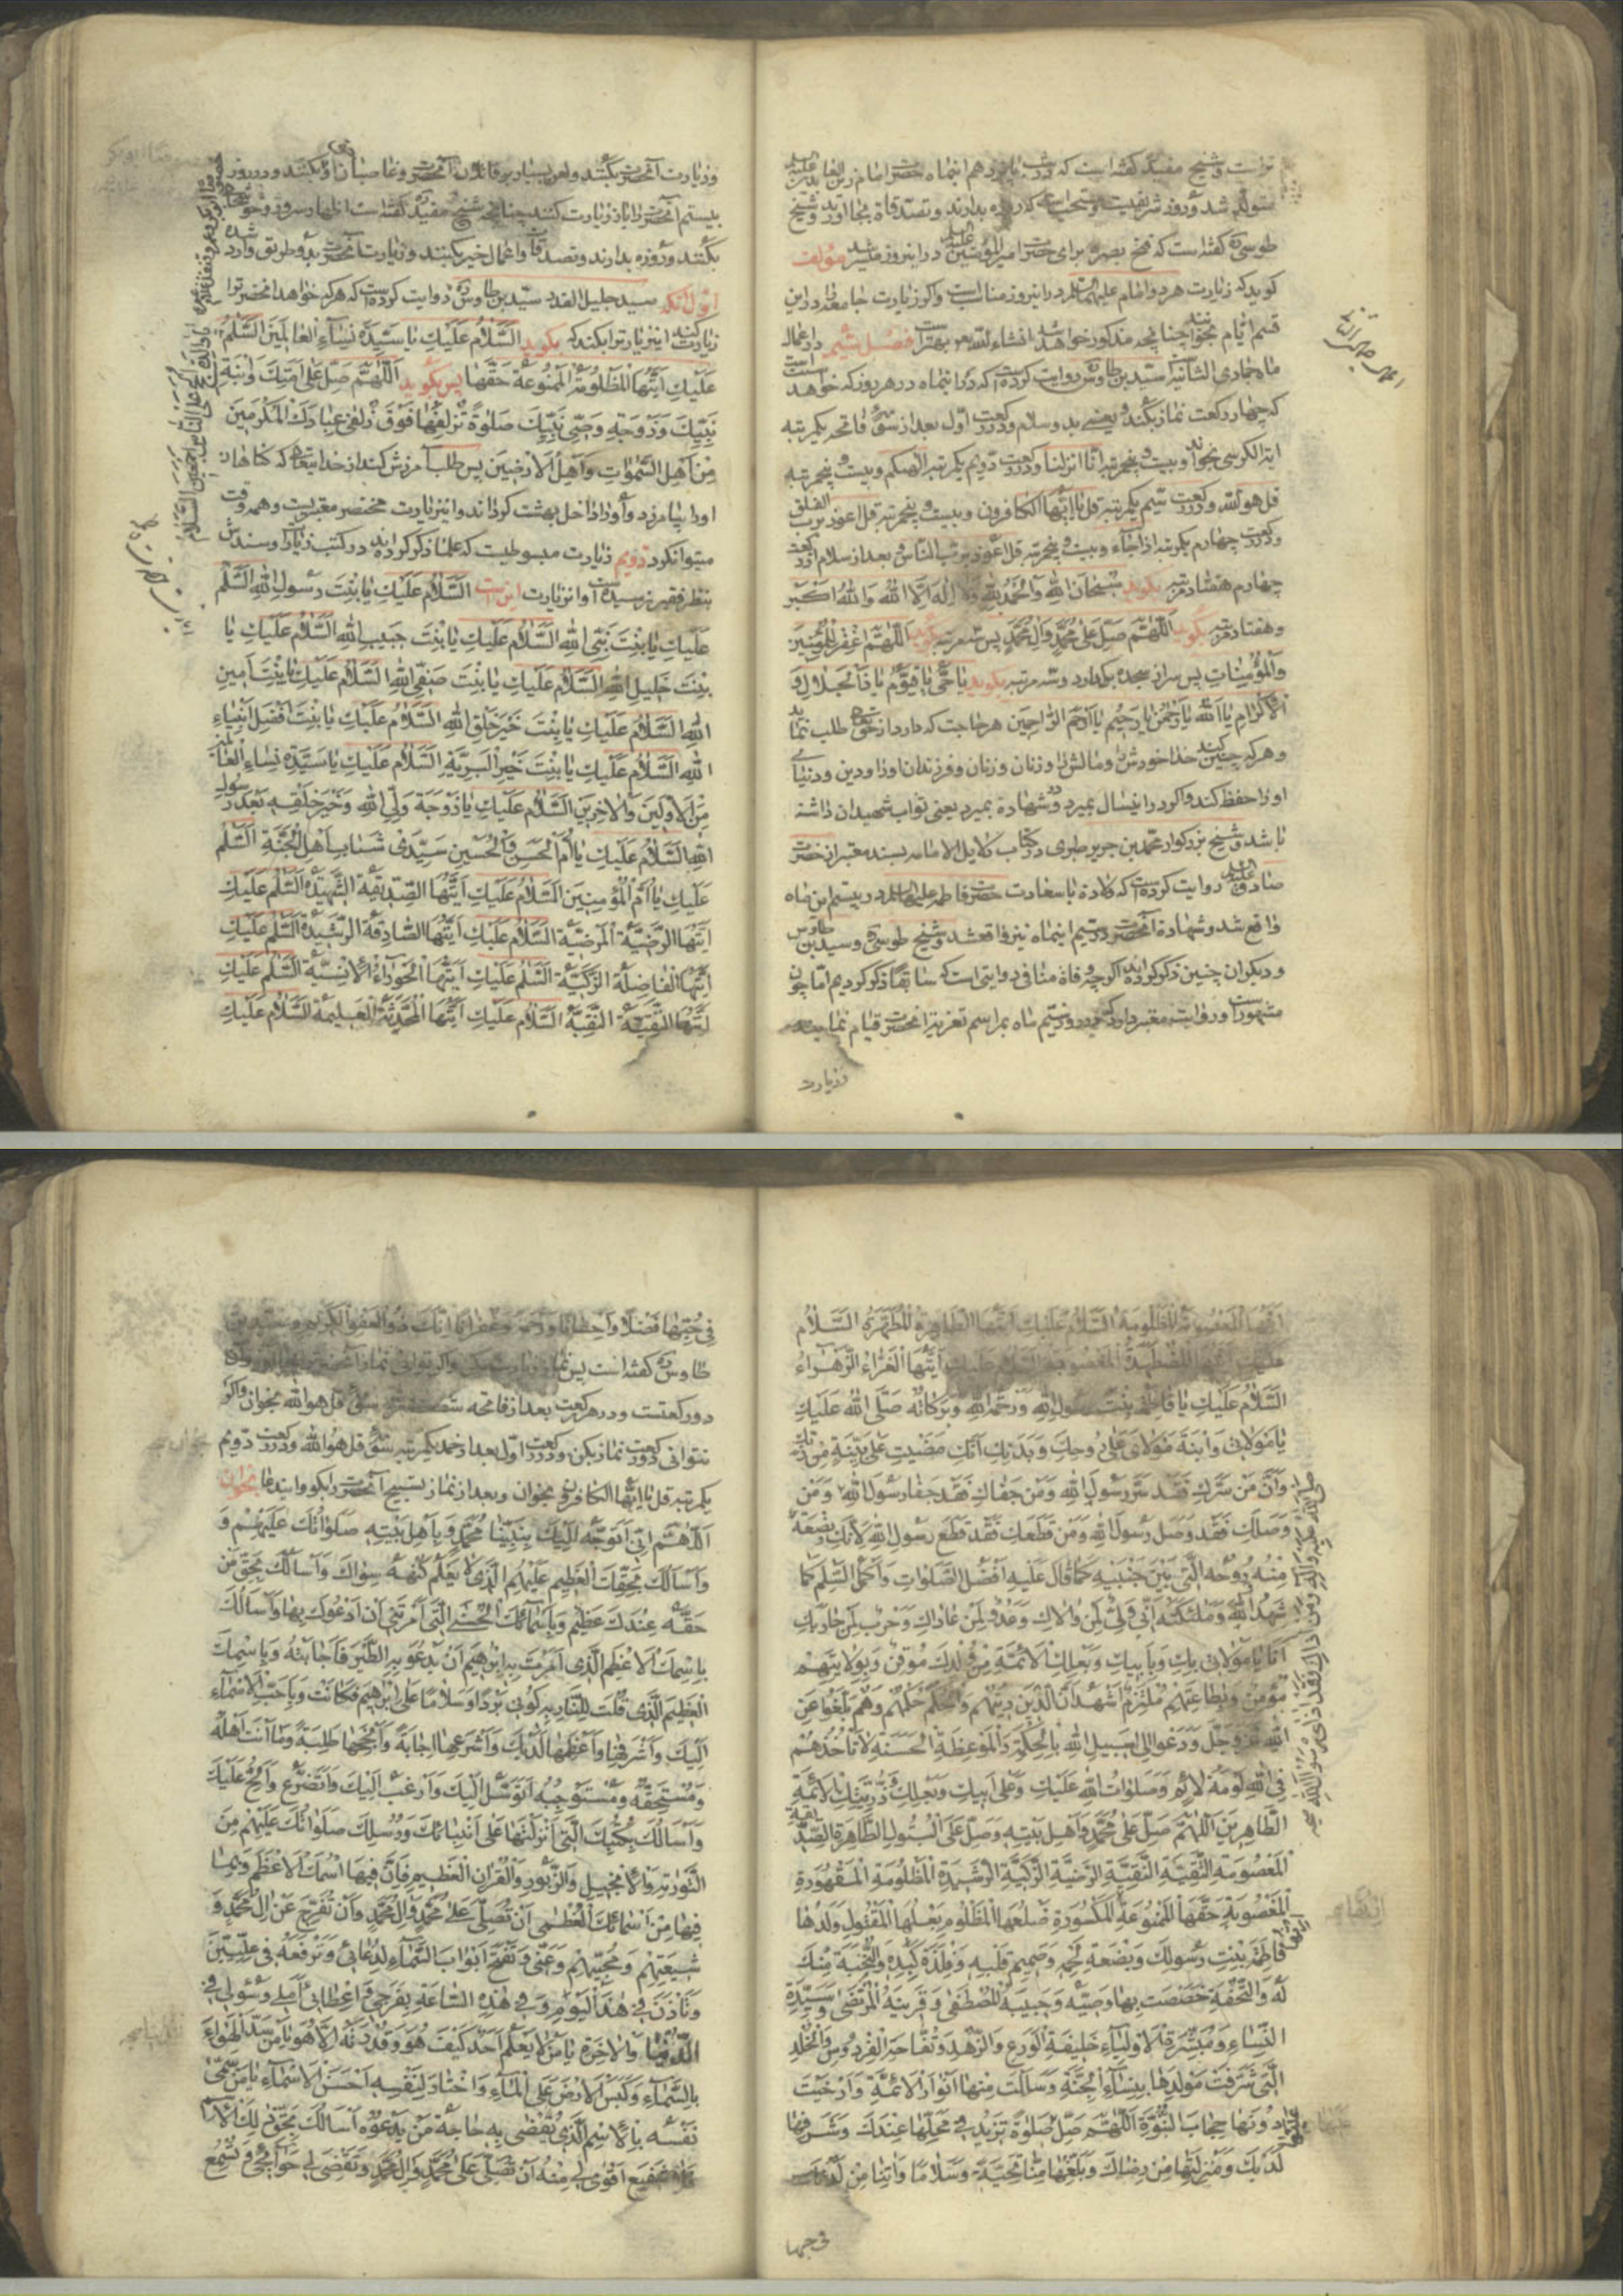 تراست و شیخ مفید گفته است که در شب پانزدهم اینماه حضرت امام زین العابدین علیه السلم
متولد شد و روز شریفیست و مستحب است که روزه بدارند و تصدقات بجا اورند و شیخ
طوسی گفته است که فتح بصره برای حضرت امیرالمؤمنین علیه السلم در اینروز میسر شد مؤلف
کوید که زیارت هر دو امام علیهما السلم در اینروز مناسب است و اکر زیارت جامعه را در این
قسم ایام بخوانند چنانچه مذکور خواهد شد انشاء الله بهتر است فصل ششم در اعمال
ماه جمادی الثانیه سید بن طاوس روایت کرده است که در اینماه در هر روز که خواهد
که چهار رکعت نماز بکند یعنی بدو سلام و در رکعت اول بعد از سوره فاتحه یکمرتبه
ایة الکرسی بخواند و بیست و پنجمرتبه انا انزلنا و در رکعت دویم یکمرتبه الهیکم و بیست و پنجمرتبه
قل هو الله و در رکعت سیم یکمرتبه قل یا ایها الکافرون و بیست و پنجمرتبه قل اعوذ برب الفلق
و در رکعت چهارم یکمرتبه اذا جاء و بیست و پنجمرتبه قل اعوذ برب الناس و بعد از سلام از رکعت
چهارم هفتاد مرتبه بکوید سُبْحانَ اللهِ وَالْحَمْدُ لِلّهِ وَلا اِلهَ اِلَّا اللهُ وَاللهُ اَکْبَر
و هفتاد مرتبه بکوید اَللّهُمَّ صَلِّ عَلی مُحَمَّدٍ وَآلِ مُحَمَّدٍ پس سه مرتبه بکوید اَللّهُمَّ اغْفِرْ لِلْمُؤْمِنینَ
وَالْمُؤْمِناتِ پس سر از سجده بردارد و سه مرتبه بکوید یا حَیُّ یا قَیُّومُ یا ذَا الْجَلالِ وَ
الْاِکْرامِ یا اَللهُ یا رَحْمنُ یا رَحیمُ یا اَرْحَمَ الرّاحِمینَ هر حاجت که دارد از حق طلب نماید
و هر که چنین کند خدا خودش را و مالش را و زنان و فرزندان او را و دین و دنیای
او را حفظ کند و اکر در اینسال بمیرد بر شهادة بمیرد یعنی ثواب شهیدان داشته
باشد و شیخ بزرکوار محمد بن جریر طبری در کتاب دلایل الامامه بسند معتبر از حضرت
صادق علیه السلم روایت کرده است که ولادة با سعادت حضرت فاطمه علیها السلم در بیستم این ماه
واقع شد و شهادة آنحضرت در سیم اینماه نیز واقعشد و شیخ طوسی و سید بن طاوس
و دیکران چنین ذکر کرده اند اکرچه وفاة منافی روایتی است که سابقا ذکر کردیم اما چون
مشهور است و روایت معتبر دارد که در روز سیم ماه بمراسم تعزیة آنحضرت قیام نمایند
وزیارت
وزیارت آنحضرت بکنند و لعن بسیار بر قاتلان آنحضرت و غاصبان حق او بکنند و در روز
بیستم آنحضرت را باز زیارت کنند چنانچه شیخ مفید گفته است اظهار سرور و خوشحالی
بکنند و روزه بدارند و تصدقات و اعمال خیر بکنند و زیارت آنحضرت بدو طریق وارد شده
اول آنکه سید جلیل القدر سید بن طاوس روایت کرده است که هر که خواهد آنحضرت را
زیارت کند اینزیارت را بکند که بکوید اَلسَّلامُ عَلَیْكِ یا سَیِّدَةَ نِساءِ الْعالَمینَ اَلسَّلامُ
عَلَیْكِ اَیَّتُهَا الْمَظْلُومَةُ الْمَمْنُوعَةُ حَقُّها پس بکوید اَللّهُمَّ صَلِّ عَلی اَمَتِكَ وَابْنَةِ
نَبِیِّكَ وَزَوْجَةِ وَصِیِّ نَبِیِّكَ صَلوةً تُزْلِفُها فَوْقَ زُلْفی عِبادِكَ الْمُکْرَمینَ
مِنْ اَهْلِ السَّمواتِ وَاَهْلِ الْاَرَضینَ پس طلب آمرزش کند از خدا بتحقیق که کناهان
او را بیامرزد و او را داخل بهشت کرداند و اینزیارت مختصر معتبریست و همه وقت
میتوان کرد دویم زیارت مبسوطیست که علما ذکر کرده اند در کتب زیارات و سندش
بنظر فقیر نرسیده است و انزیارت این است اَلسَّلامُ عَلَیْكِ یا بِنْتَ رَسُولِ اللهِ اَلسَّلامُ
عَلَیْكِ یا بِنْتَ نَبِیِّ اللهِ اَلسَّلامُ عَلَیْكِ یا بِنْتَ حَبیبِ اللهِ اَلسَّلامُ عَلَیْكِ یا
بِنْتَ خَلیلِ اللهِ اَلسَّلامُ عَلَیْكِ یا بِنْتَ صَفِیِّ اللهِ اَلسَّلامُ عَلَیْكِ یا بِنْتَ اَمینِ
اللهِ اَلسَّلامُ عَلَیْكِ یا بِنْتَ خَیْرِ خَلْقِ اللهِ اَلسَّلامُ عَلَیْكِ یا بِنْتَ اَفْضَلِ اَنْبِیاءِ
اللهِ اَلسَّلامُ عَلَیْكِ یا بِنْتَ خَیْرِ الْبَرِیَّةِ اَلسَّلامُ عَلَیْكِ یا سَیِّدَةَ نِساءِ الْعالَمینَ
مِنَ الْاَوَّلینَ وَالْاخِرینَ اَلسَّلامُ عَلَیْكِ یا زَوْجَةَ وَلِیِّ اللهِ وَخَیْرِ خَلْقِهِ بَعْدَ رَسُولِ
اللهِ اَلسَّلامُ عَلَیْكِ یا اُمَّ الْحَسَنِ وَالْحُسَیْنِ سَیِّدَیْ شَبابِ اَهْلِ الْجَنَّةِ اَلسَّلامُ
عَلَیْكِ یا اُمَّ الْمُؤْمِنینَ اَلسَّلامُ عَلَیْكِ اَیَّتُهَا الصِّدّیقَةُ الشَّهیدَةُ اَلسَّلامُ عَلَیْكِ
اَیَّتُهَا الرَّضِیَّةُ الْمَرْضِیَّةُ اَلسَّلامُ عَلَیْكِ اَیَّتُهَا الصّادِقَةُ الرَّشیدَةُ اَلسَّلامُ عَلَیْكِ
اَیَّتُهَا الْفاضِلَةُ الزَّکِیَّةُ اَلسَّلامُ عَلَیْكِ اَیَّتُهَا الْحَوْراءُ الْاِنْسِیَّةُ اَلسَّلامُ عَلَیْكِ
اَیَّتُهَا التَّقِیَّةُ النَّقِیَّةُ اَلسَّلامُ عَلَیْكِ اَیَّتُهَا الْمُحَدَّثَةُ الْعَلیمَةُ اَلسَّلامُ عَلَیْكِ
اَیَّتُهَا الْمَعْصُومَةُ الْمَظْلُومَةُ اَلسَّلامُ عَلَیْكِ اَیَّتُهَا الطّاهِرَةُ الْمُطَهَّرَةُ اَلسَّلامُ
عَلَیْكِ اَیَّتُهَا الْمُضْطَهَدَةُ الْمَغْصُوبَةُ اَلسَّلامُ عَلَیْكِ اَیَّتُهَا الْغَرّاءُ الزَّهْراءُ
اَلسَّلامُ عَلَیْكِ یا فاطِمَةُ بِنْتَ رَسُولِ اللهِ وَرَحْمَةُ اللهِ وَبَرَکاتُهُ صَلَّی اللهُ عَلَیْكِ
یا مَوْلاتی وَابْنَةَ مَوْلایَ وَعَلی رُوحِكِ وَبَدَنِكِ اَنَّكِ مَضَیْتِ عَلی بَیِّنَةٍ مِنْ رَبِّكِ
وَاَنَّ مَنْ سَرَّكِ فَقَدْ سَرَّ رَسُولَ اللهِ وَمَنْ جَفاكِ فَقَدْ جَفا رَسُولَ اللهِ وَمَنْ
وَصَلَكِ فَقَدْ وَصَلَ رَسُولَ اللهِ وَمَنْ قَطَعَكِ فَقَدْ قَطَعَ رَسُولَ اللهِ لِاَنَّكِ بَضْعَةٌ
مِنْهُ وَرُوحُهُ الَّتی بَیْنَ جَنْبَیْهِ کَما قالَ عَلَیْهِ اَفْضَلُ الصَّلَواتِ وَاَکْمَلُ السَّلامِ کَما
شَهِدَ اللهُ وَمَلئِکَتُهُ اَنّی وَلِیٌّ لِمَنْ والاكِ وَعَدُوٌّ لِمَنْ عاداكِ وَحَرْبٌ لِمَنْ حارَبَكِ
اَنَا یا مَوْلاتی بِكِ وَبِاَبیكِ وَبَعْلِكِ وَالْاَئِمَّةِ مِنْ وُلْدِكِ مُوقِنٌ وَبِوِلایَتِهِمْ
مُؤْمِنٌ وَبِطاعَتِهِمْ مُلْتَزِمٌ اَشْهَدُ اَنَّ الدّینَ دینُهُمْ وَالْحُکْمَ حُکْمُهُمْ وَهُمْ بَلَّغُوا عَنِ
اللهِ عَزَّ وَجَلَّ وَدَعَوْا اِلی سَبیلِ اللهِ بِالْحِکْمَةِ وَالْمَوْعِظَةِ الْحَسَنَةِ لا تَأْخُذُهُمْ
فِی اللهِ لَوْمَةُ لائِمٍ وَصَلَواتُ اللهِ عَلَیْكِ وَعَلی اَبیكِ وَبَعْلِكِ وَذُرِّیَّتِكِ الْاَئِمَّةِ
الطّاهِرینَ اَللّهُمَّ صَلِّ عَلی مُحَمَّدٍ وَاَهْلِ بَیْتِهِ وَصَلِّ عَلَی الْبَتُولِ الطّاهِرَةِ الصِّدّیقَةِ
الْمَعْصُومَةِ التَّقِیَّةِ النَّقِیَّةِ الرَّضِیَّةِ الزَّکِیَّةِ الرَّشیدَةِ الْمَظْلُومَةِ الْمَقْهُورَةِ
الْمَغْصُوبَةِ حَقُّهَا الْمَمْنُوعَةِ اِرْثُهَا الْمَکْسُورَةِ ضِلْعُهَا الْمَظْلُومِ بَعْلُهَا الْمَقْتُولِ وَلَدُها
فاطِمَةَ بِنْتِ رَسُولِكَ وَبَضْعَةِ لَحْمِهِ وَصَمیمِ قَلْبِهِ وَفِلْذَةِ کَبِدِهِ وَالنُّخْبَةِ مِنْكَ
لَهُ وَالتُّحْفَةِ خَصَصْتَ بِها وَصِیَّهُ وَحَبیبَةِ الْمُصْطَفی وَقَرینَةِ الْمُرْتَضی وَسَیِّدَةِ
النِّساءِ وَمُبَشِّرَةِ الْاَوْلِیاءِ حَلیفَةِ الْوَرَعِ وَالزُّهْدِ وَتُفّاحَةِ الْفِرْدَوْسِ وَالْخُلْدِ
الَّتی شَرَّفْتَ مَوْلِدَها بِنِساءِ الْجَنَّةِ وَسَلَلْتَ مِنْها اَنْوارَ الْاَئِمَّةِ وَاَرْخَیْتَ
دُونَها حِجابَ النُّبُوَّةِ اَللّهُمَّ صَلِّ عَلَیْها صَلوةً تَزیدُ فی مَحَلِّها عِنْدَكَ وَشَرَفِها
لَدَیْكَ وَمَنْزِلَتِها مِنْ رِضاكَ وَبَلِّغْها مِنّا تَحِیَّةً وَسَلامًا وَاتِنا مِنْ لَدُنْكَ
فی حبها
فی حُبِّها فَضْلًا وَاِحْسانًا وَرَحْمَةً وَغُفْرانًا اِنَّكَ ذُو الْعَفْوِ الْکَریمِ و سید بن
طاوس گفته است پس نماز زیارت بکن و اکر توانی نماز آنحضرت را بجا اور و ان
دو رکعتست و در هر رکعت بعد از فاتحه شصت مرتبه سوره قل هو الله بخوان و اکر
نتوانی دو رکعت نماز بکن و در رکعت اول بعد از حمد یکمرتبه سوره قل هو الله و در رکعت دویم
یکمرتبه قل یا ایها الکافرون بخوان و بعد از نماز تسبیح آنحضرت را بکو و ایندعا بخوان
اَللّهُمَّ اِنّی اَتَوَجَّهُ اِلَیْكَ بِنَبِیِّنا مُحَمَّدٍ وَبِاَهْلِ بَیْتِهِ صَلَواتُكَ عَلَیْهِمْ وَ
وَاَسْاَلُكَ بِحَقِّكَ الْعَظیمِ عَلَیْهِمُ الَّذی لا یَعْلَمُ کُنْهَهُ سِواكَ وَاَسْاَلُكَ بِحَقِّ مَنْ
حَقُّهُ عِنْدَكَ عَظیمٌ وَبِاَسْمائِكَ الْحُسْنَی الَّتی اَمَرْتَنی اَنْ اَدْعُوَكَ بِها وَاَسْاَلُكَ
بِاسْمِكَ الْاَعْظَمِ الَّذی اَمَرْتَ بِهِ اِبْرهیمَ اَنْ یَدْعُوَ بِهِ الطَّیْرَ فَاَجابَتْهُ وَبِاسْمِكَ
الْعَظیمِ الَّذی قُلْتَ لِلنّارِ بِهِ کُونی بَرْدًا وَسَلامًا عَلی اِبْرهیمَ فَکانَتْ وَبِاَحَبِّ الْاَسْماءِ
اِلَیْكَ وَاَشْرَفِها وَاَعْظَمِها لَدَیْكَ وَاَسْرَعِها اِجابَةً وَاَنْجَحِها طَلِبَةً وَبِما اَنْتَ اَهْلُهُ
وَمُسْتَحِقُّهُ وَمُسْتَوْجِبُهُ اَتَوَسَّلُ اِلَیْكَ وَاَرْغَبُ اِلَیْكَ وَاَتَضَرَّعُ وَاُلِحُّ عَلَیْكَ
وَاَسْاَلُكَ بِکُتُبِكَ الَّتی اَنْزَلْتَها عَلی اَنْبِیائِكَ وَرُسُلِكَ صَلَواتُكَ عَلَیْهِمْ مِنَ
التَّوْریةِ وَالْاِنْجیلِ وَالزَّبُورِ وَالْقُرْانِ الْعَظیمِ فَاِنَّ فیهَا اسْمَكَ الْاَعْظَمَ وَبِما
فیها مِنْ اَسْمائِكَ الْعُظْمی اَنْ تُصَلِّیَ عَلی مُحَمَّدٍ وَالِ مُحَمَّدٍ وَاَنْ تُفَرِّجَ عَنْ الِ مُحَمَّدٍ وَ
شیعَتِهِمْ وَمُحِبّیهِمْ وَعَنّی وَتَفْتَحَ اَبْوابَ السَّماءِ لِدُعائی وَتَرْفَعَهُ فی عِلِّیّینَ
وَتَأْذَنَ فی هذَا الْیَوْمِ وَفی هذِهِ السّاعَةِ بِفَرَجی وَاِعْطاءِ اَمَلی وَسُؤْلی فِی
الدُّنْیا وَالْاخِرَةِ یا مَنْ لا یَعْلَمُ اَحَدٌ کَیْفَ هُوَ وَقُدْرَتَهُ اِلّا هُوَ یا مَنْ سَدَّ الْهَواءَ
بِالسَّماءِ وَکَبَسَ الْاَرْضَ عَلَی الْماءِ وَاخْتارَ لِنَفْسِهِ اَحْسَنَ الْاَسْماءِ یا مَنْ سَمّی
نَفْسَهُ بِالْاِسْمِ الَّذی یُقْضی بِهِ حاجَةُ مَنْ یَدْعُوهُ اَسْاَلُكَ بِحَقِّ ذلِكَ الْاِسْمِ
فَلا شَفیعَ اَقْوی لی مِنْهُ اَنْ تُصَلِّیَ عَلی مُحَمَّدٍ وَالِ مُحَمَّدٍ وَتَقْضِیَ لی حَوائِجی وَتُسْمِعَ